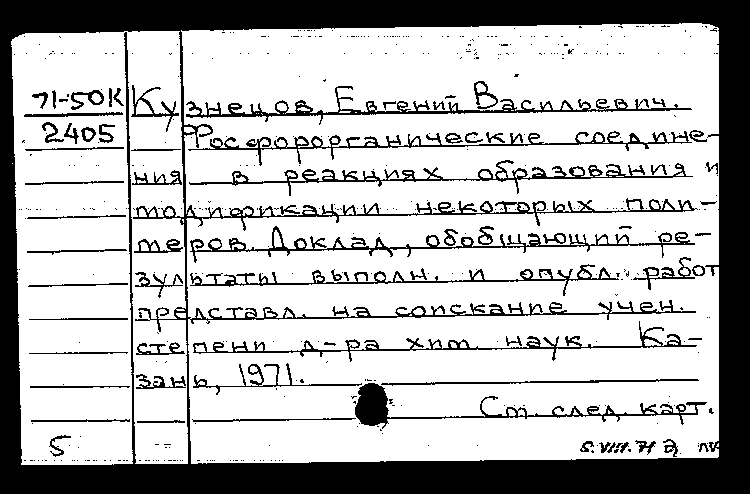 71-50К Кузнецов, Евгений Васильевич.
2405 Фосфорорганические соедине-
ния в реакциях образования и
модификации некоторых поли-
меров. Доклад, обобщающий ре-
зультаты выполн. и опубл. работ
представл. на соискание учен.
степени д-ра хим. наук. Ка-
зань, 1971.
См. след. карт.
5 5.VIII.71